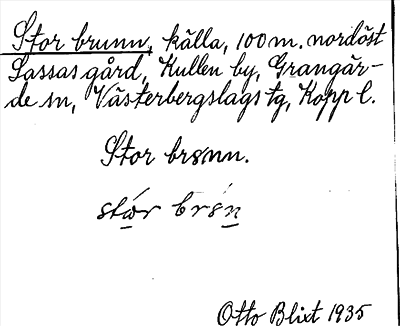 Stor brunn, källa, 100 m. nordöst
Lassas gård, Kullen by, Grangär-
de sn, Västerbergslags tg, Kopp l.
Stor brɜnn.
Otto Blixt 1935